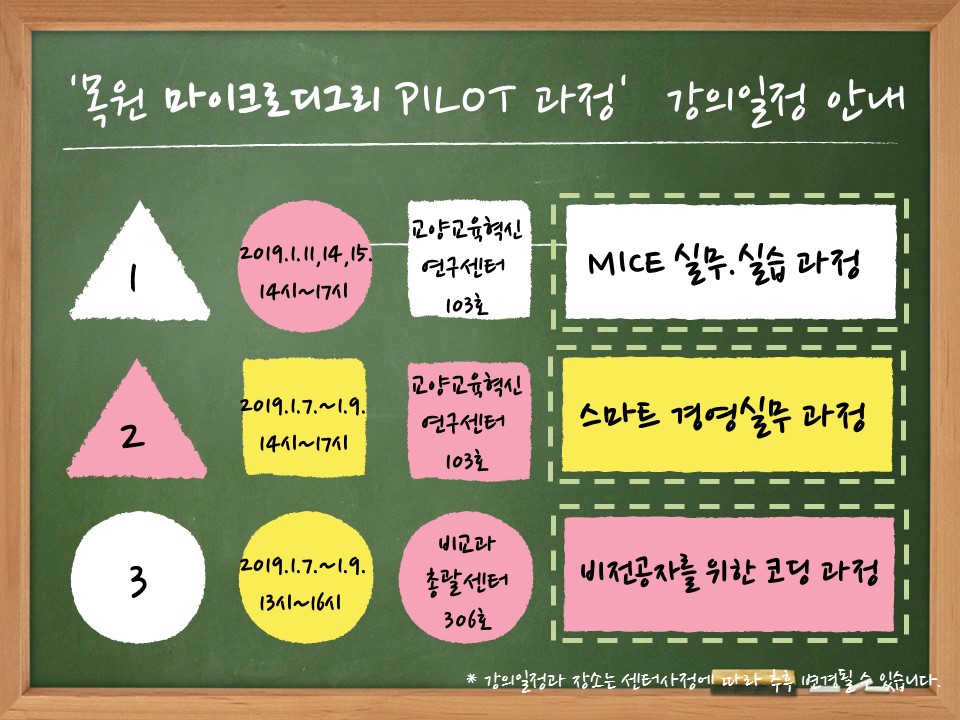 '목원 마이크로디그리 PILOT 과정' 강의일정 안내
1
2019.1.11,14,15.
14시~17시
교양교육혁신
연구센터
103호
MICE 실무.실습 과정
2
2019.1.7.~1.9.
14시~17시
교양교육혁신
연구센터
103호
스마트 경영실무 과정
3
2019.1.7.~1.9.
13시~16시
비교과
총괄센터
306호
비전공자를 위한 코딩 과정
* 강의일정과 장소는 센터사정에 따라 추후 변경될 수 있습니다.